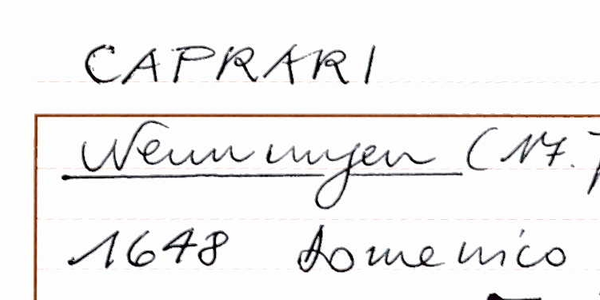 CAPRARI
Nennungen (17.
1648 Domenico